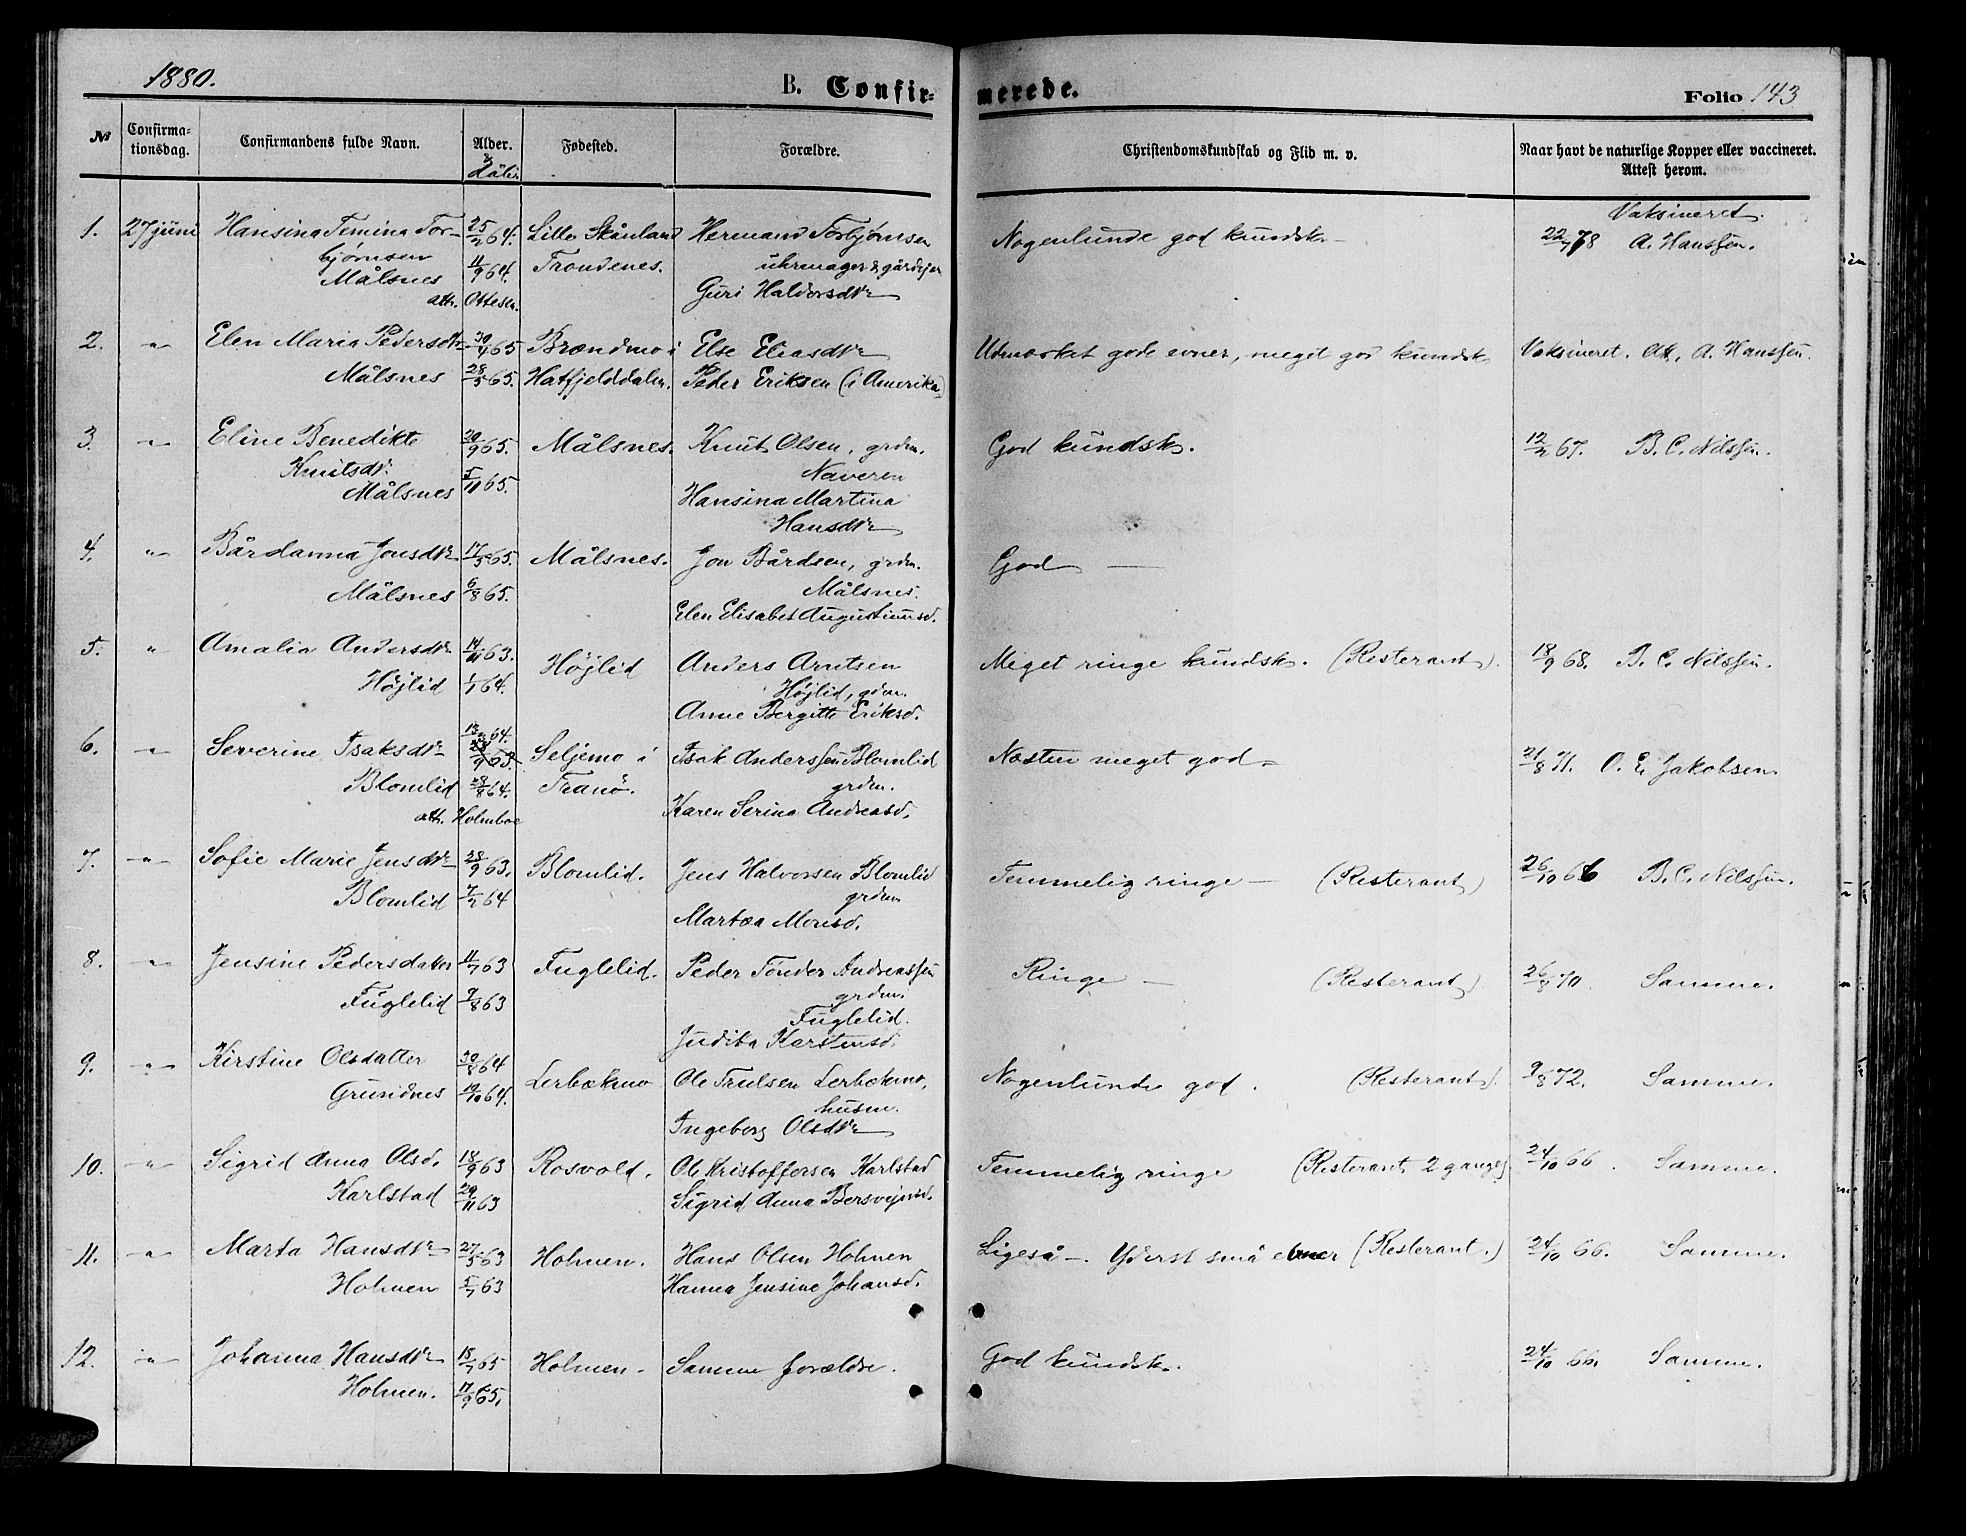 1880. B. Confir-
merede. Folio 143
№ Confirma-tionsdag. Confirmandens fulde Navn. Alder. & dåb. Fødested. Forældre. Christendomskundskab og Flid m. v. Naar havt de naturlige Kopper eller vaccineret. Attest herom.
1. 27 juni Hansina Femina Tor- 25/2 64. Lille Skånland Hermand Torbjørnsen Nogenlunde god kundsk. Vaksineret.
bjørnsen 11/9 64. Trondenes. uhrmager & gårdejer 22/7 78 A. Hanssen.
Målsnes Guri Haldorsdtr
att. Ottesen.
2. " Elen Maria Pedersdtr 65 Brændmo i Else Eliasdtr Udmærket gode evner, meget god kundsk Vaksineret. A. Hanssen.
Målsnes 28/5 65. Hatfjelddalen. Peder Eriksen (i Amerika)
3. " Eline Benedikte 20/9 65. Målsnes. Knut Olsen, grdm. God kundsk. 12/2 67. B. C. Nilssen.
Knutsdr. 5/11 65. Naveren
Målsnes Hansina Martina
Hansdtr
4. " Bårdanna Jonsdtr 17/5 65. Målsnes. Jon Bårdsen, grdm. God —
Målsnes 6/8 65. Målsnes.
Elen Elisabet Augustinusd.
5. " Amalia Andersdtr 14/11 63. Højlid Anders Arntsen Meget ringe kundsk. (Resterant). 18/9 68. B. C. Nilssen.
Højlid 1/1 64. Højlid, grdm.
Anne Bergitte Eriksd.
6. " Severine Isaksdtr 64. Seljemo i Isak Anderssen Blomlid Næsten meget god 21/8 71. O. E. Jakobsen
Blomlid 28/8 64. Tranö. grdm.
att. Holmboe Karen Serina Andreasd.
7. " Sofie Marie Jensdtr 28/9 63. Blomlid. Jens Halvorsen Blomlid Temmelig ringe — (Resterant) 26/10 66 B. C. Nilssen.
Blomlid 7/2 64 grdm
Martea Monsd.
8. " Jensine Pedersdatter 11/7 63 Fuglelid. Peder Tönder Andreassen Ringe — (Resterant) 26/8 70. Samme.
Fuglelid 9/8 63 grdm.
Fuglelid.
Judita Karstensd.
9. " Kirstine Olsdatter 30/8 64 Lerbækmo Ole Trulsen Lerbækmo, Nogenlunde god. (Resterant). 9/8 72. Samme.
Grundnes 19/10 64. husm.
Ingeborg Olsdtr
10. " Sigrid Anna Olsd. 18/9 63 Rosvold. Ole Kristoffersen Karlstad Temmelig ringe (Resterant 2 gange) 24/10 66. Samme.
Karlstad 29/11 63 Sigrid Anna Bersvejnsd.
11. " Marta Hansdtr 27/5 63 Holmen. Hans Olsen Holmen Ligeså —. Yderst små evner (Resterant.) 24/10 66. Samme.
Holmen 5/7 63 Hanna Jensine Johansd.
12. " Johanna Hansdtr 18/7 65 Holmen. Samme forældre. God kundsk. 24/10 66. Samme.
Holmen. 17/9 65.